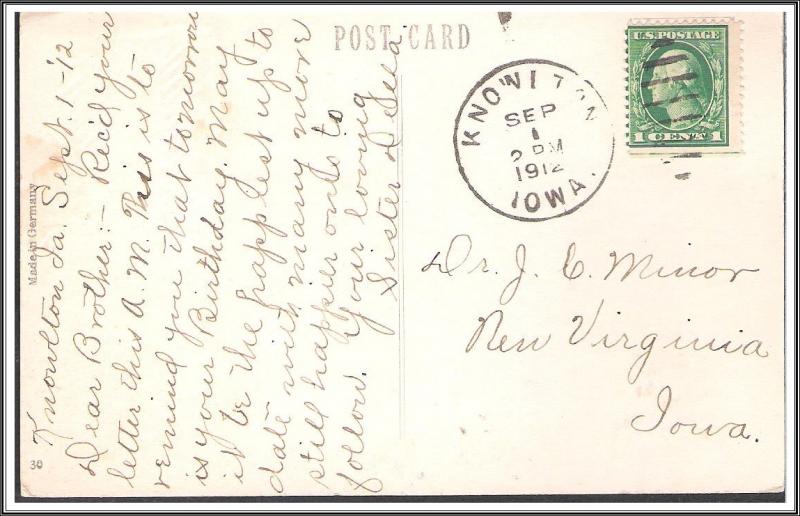 POST CARD
Made in Germany
30
Knowlton Ia. Sept. 1-'12
Dear Brother:- Rec'd your
letter this A.M. This is to
remind you that tomorrow
is your Birthday. May
it be the happiest up to
date with many more
still happier ones to
follow. Your loving
Sister Della
KNOWLTON
SEP
1
2 PM
1912
IOWA.
U.S. POSTAGE
1 CENT 1
Dr. J. C. Minor
New Virginia
Iowa.